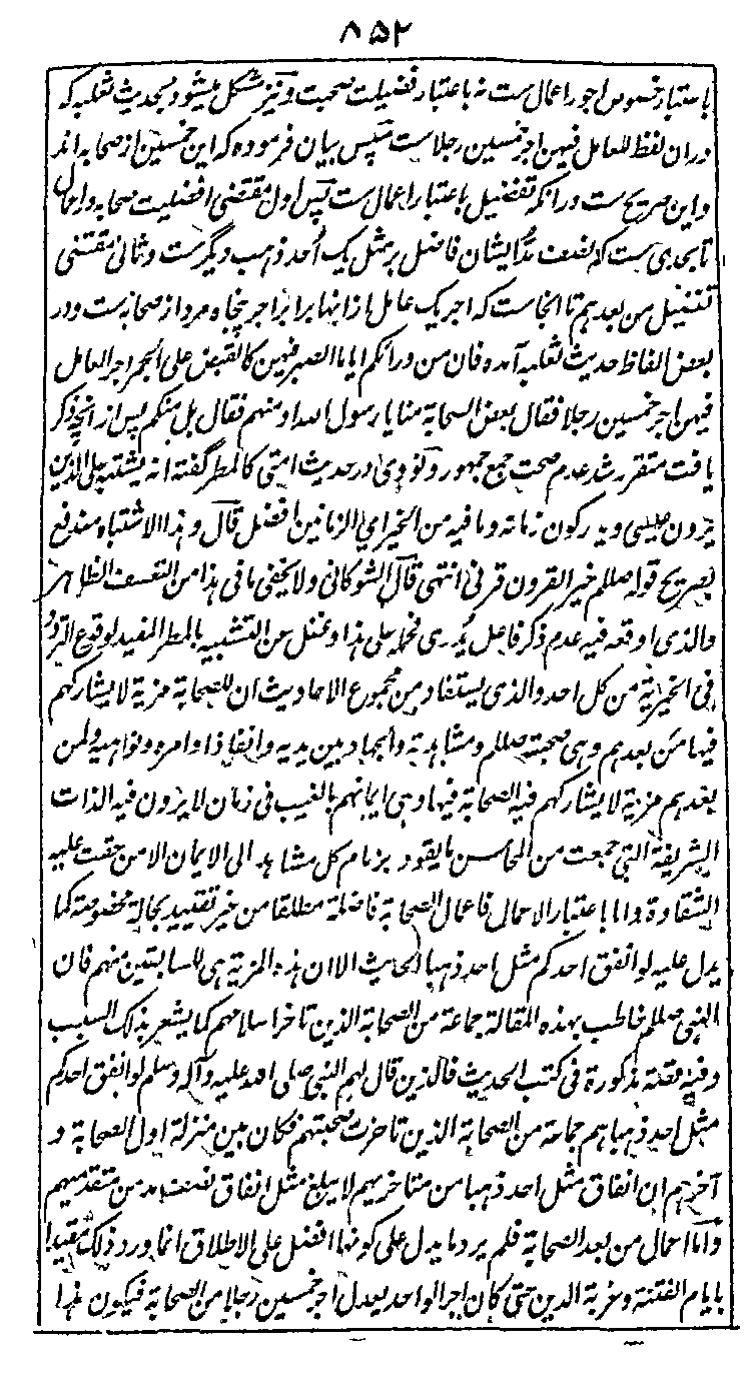 ۸۵۲
باعتبار خصوص اجور اعمال ست نه باعتبار فضیلت صحبت و نیز مشکل میشود بحدیث ثعلبه که
دران لفظ للعامل فیهن اجر خمسین رجلا ست سپس بیان فرموده که این خمسین از صحابه اند
و این صریح ست در انکه تفضیل باعتبار اعمال ست پس اول مقتضی افضلیت صحابه در اعمال
تا بحدی ست که نصف مد ایشان فاضل بر مثل یک اُحد ذهب دیگر ست و ثانی مقتضی
تفضیل من بعدهم تا انجاست که اجر یک عامل ازانها برابر اجر پنجاه مرد از صحابه ست و در
بعض الفاظ حدیث ثعلبه آمده فان من ورائکم ایاما الصبر فیهن کالقبض علی الجمر اجر العامل
فیهن اجر خمسین رجلا فقال بعض الصحابة منا یا رسول الله او منهم فقال بل منکم پس از انچه ذکر
یافت متقرر شد عدم صحت جمع جمهور و نووی در حدیث امتی کالمطر گفته انه یشتبه علی الذین
یرون عیسی و یدرکون زمانه وما فیه من الخیر ای الزمانین افضل قال وهذا الاشتباه مندفع
بصریح قوله صللم خیر القرون قرنی انتهی قال الشوکانی ولا یخفی ما فی هذا من التعسف الظاهر
والذی اوقعه فیه عدم ذکر فاعل یُدری فحمله علی هذا وغفل عن التشبیه بالمطر المفید لوقوع التردد
فی الخیریة من کل احد والذی یستفاد من مجموع الاحادیث ان للصحابة مزیة لا یشارکهم
فیها من بعدهم وهی صحبته صللم ومشاهدته والجهاد بین یدیه وانفاذ اوامره ونواهیه ولمن
بعدهم مزیة لا یشارکهم فیه الصحابة فیها وهی ایمانهم بالغیب فی زمان لا یرون فیه الذات
الشریفة التی جمعت من المحاسن ما یقود بزمام کل مشاهد الی الایمان الا من حقت علیه
الشقاوة واما باعتبار الاعمال فاعمال الصحابة فاضلة مطلقا من غیر تقیید بحالة مخصوصة کما
یدل علیه لو انفق احدکم مثل احد ذهبا الحدیث الا ان هذه المزیة هی للسابقین منهم فان
النبی صللم خاطب بهذه المقالة جماعة من الصحابة الذین تاخر اسلامهم کما یشعر بذلک السبب
وفیه قصة مذکورة فی کتب الحدیث فالذین قال لهم النبی صلی الله علیه وآله وسلم لو انفق احدکم
مثل احد ذهبا هم جماعة من الصحابة الذین تاخرت صحبتهم فکان بین منزلة اول الصحابة و
آخرهم ان انفاق مثل احد ذهبا من متاخریهم لا یبلغ مثل انفاق نصف مد من متقدمیهم
واما اعمال من بعد الصحابة فلم یرد ما یدل علی کونها افضل علی الاطلاق انما ورد ذلک مقیدا
بایام الفتنة وغربة الدین حتی کان اجر الواحد یعدل اجر خمسین رجلا من الصحابة فیکون هذا